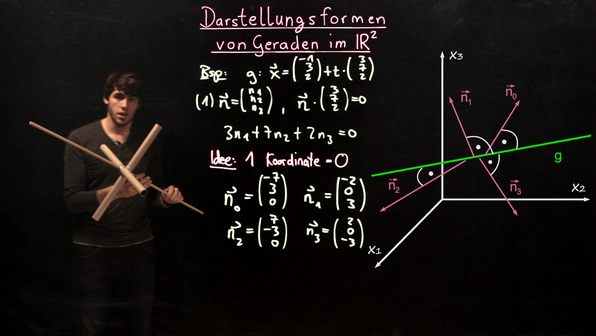 Darstellungsformen
von Geraden im ℝ²
Bsp: g: x⃗ = (-1 3 2) + t · (3 7 2)
(1) n⃗ = (n₁ n₂ n₃) , n⃗ · (3 7 2) = 0
3n₁ + 7n₂ + 2n₃ = 0
Idee: 1 Koordinate = 0
n⃗₀ = (-7 3 0) n⃗₁ = (-2 0 3)
n⃗₂ = (7 -3 0) n⃗₃ = (2 0 -3)
x₃
n⃗₁ n⃗₀
g
n⃗₂ n⃗₃ x₂
x₁